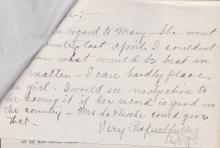 regard to Mary - She went
country last April. I couldn't
on what would be best in
matter - I can hardly place
girl. I would see no objection to
her having it if her record is good in
the country - Mrs could give
that.
Very Respectfully